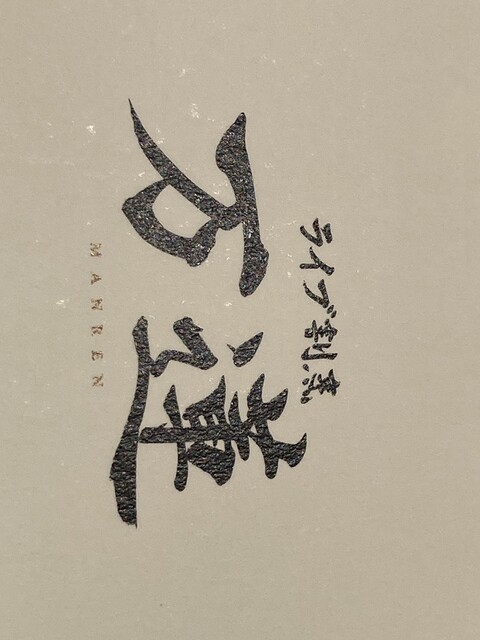 ライブ割烹
万蓮
MANREN